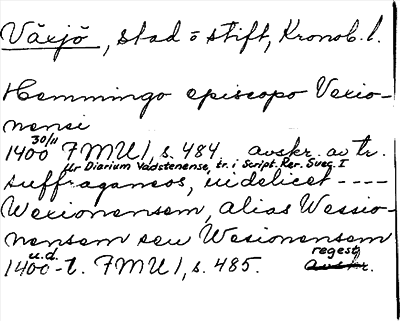 Växjö, stad o stift, Kronob. l.
Hemmingo episcopo Vexio-
nensi
1400 30/11 FMU I, s. 484 avskr. av tr.
ur Diarium Vadstenense, tr. i Script. Rer. Suec. I
suffraganeos, videlicet ----
Wexionensem, alias Wessio-
nensem seu Wesionensem
1400-t. u.d. FMU I, s. 485. avskr. regest